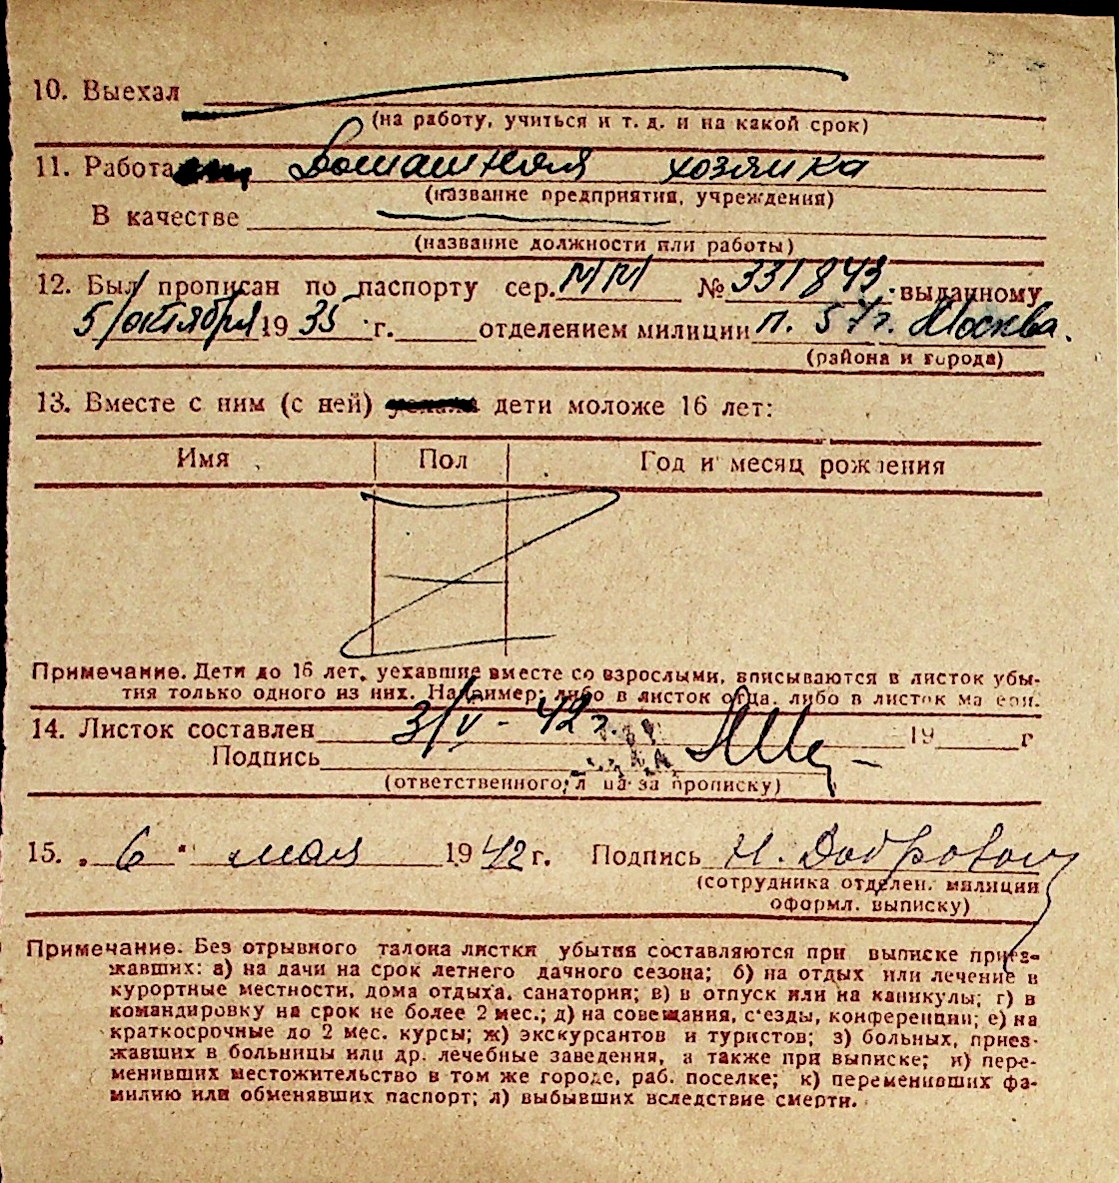 10. Выехал
(на работу, учиться и т. д. и на какой срок)
11. Работа Домашняя хозяйка
(название предприятия, учреждения)
В качестве
(название должности или работы)
12. Был прописан по паспорту сер. ММ № 331843 выданному
5/октября 1935 г. отделением милиции п. 57 г. Москва.
(района и города)
13. Вместе с ним (с ней) дети моложе 16 лет:
Имя Пол Год и месяц рождения
Примечание. Дети до 16 лет, уехавшие вместе со взрослыми, вписываются в листок убы-
тия только одного из них. Например: либо в листок отца, либо в листок матери.
14. Листок составлен 3/V - 42 г. 19 г
Подпись
(ответственного лица за прописку)
15. „ 6 " мая 1942 г. Подпись Н. Добровол
(сотрудника отделен. милиции
оформл. выписку)
Примечание. Без отрывного талона листки убытия составляются при выписке приез-
жавших: а) на дачи на срок летнего дачного сезона; б) на отдых или лечение в
курортные местности, дома отдыха, санатории; в) в отпуск или на каникулы; г) в
командировку на срок не более 2 мес.; д) на совещания, съезды, конференции; е) на
краткосрочные до 2 мес. курсы; ж) экскурсантов и туристов; з) больных, приез-
жавших в больницы или др. лечебные заведения, а также при выписке; и) пере-
менивших местожительство в том же городе, раб. поселке; к) переменивших фа-
милию или обменявших паспорт; л) выбывших вследствие смерти.